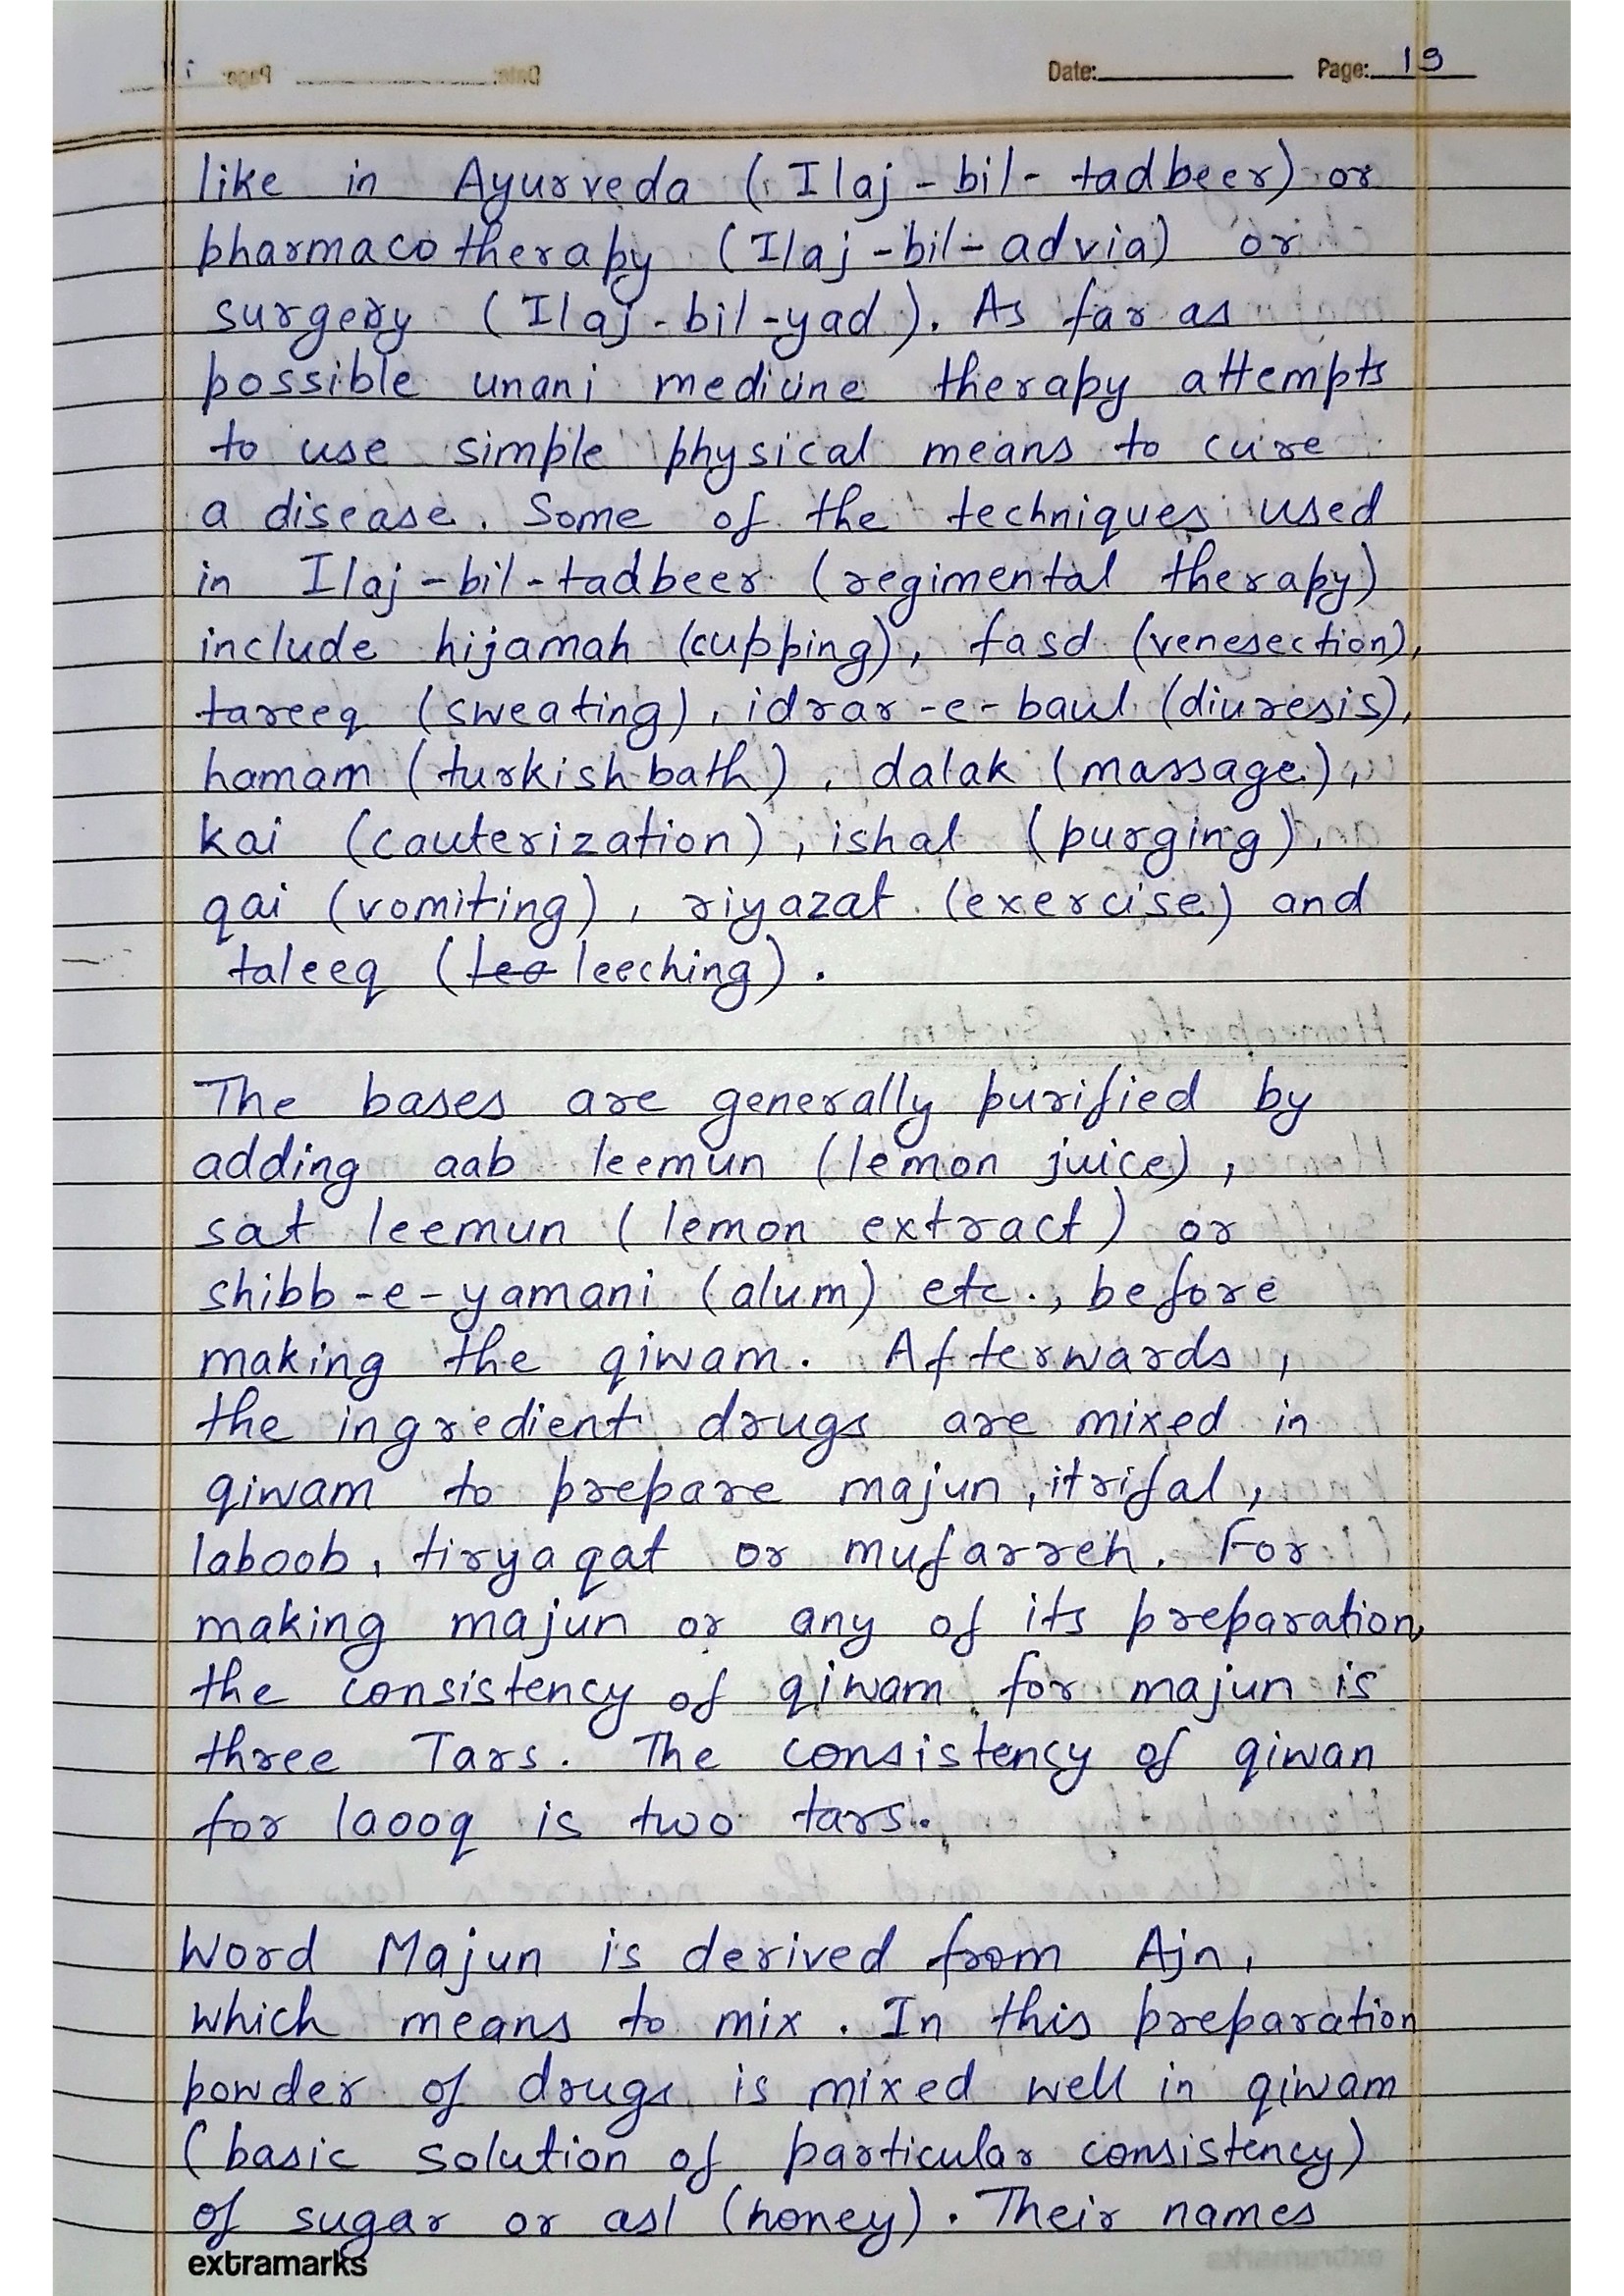 Date: Page: 19
like in Ayurveda (Ilaj-bil-tadbeer) or
pharmacotherapy (Ilaj-bil-advia) or
surgery (Ilaj-bil-yad). As far as
possible unani medicine therapy attempts
to use simple physical means to cure
a disease. Some of the techniques used
in Ilaj-bil-tadbeer (regimental therapy)
include hijamah (cupping), fasd (venesection),
tareeq (sweating), idrar-e-baul (diuresis),
hamam (turkish bath), dalak (massage),
kai (cauterization), ishal (purging),
qai (vomiting), riyazat (exercise) and
taleeq (leeching).
The bases are generally purified by
adding aab leemun (lemon juice),
sat leemun (lemon extract) or
shibb-e-yamani (alum) etc., before
making the qiwam. Afterwards,
the ingredient drugs are mixed in
qiwam to prepare majun, itrifal,
laboob, tiryaqat or mufarreh. For
making majun or any of its preparation,
the consistency of qiwam for majun is
three Tars. The consistency of qiwan
for laooq is two tars.
Word Majun is derived from Ajn,
which means to mix. In this preparation
powder of drugs is mixed well in qiwam
(basic solution of particular consistency)
of sugar or asl (honey). Their names
extramarks